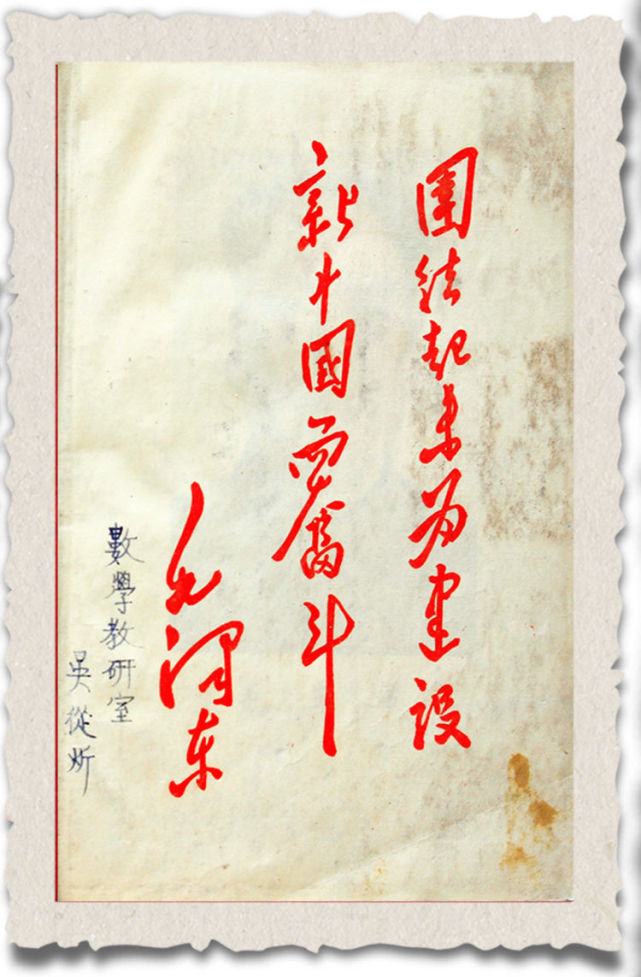 團结起来为建设
新中國而奮斗
毛澤东
數學教研室
吴從炘